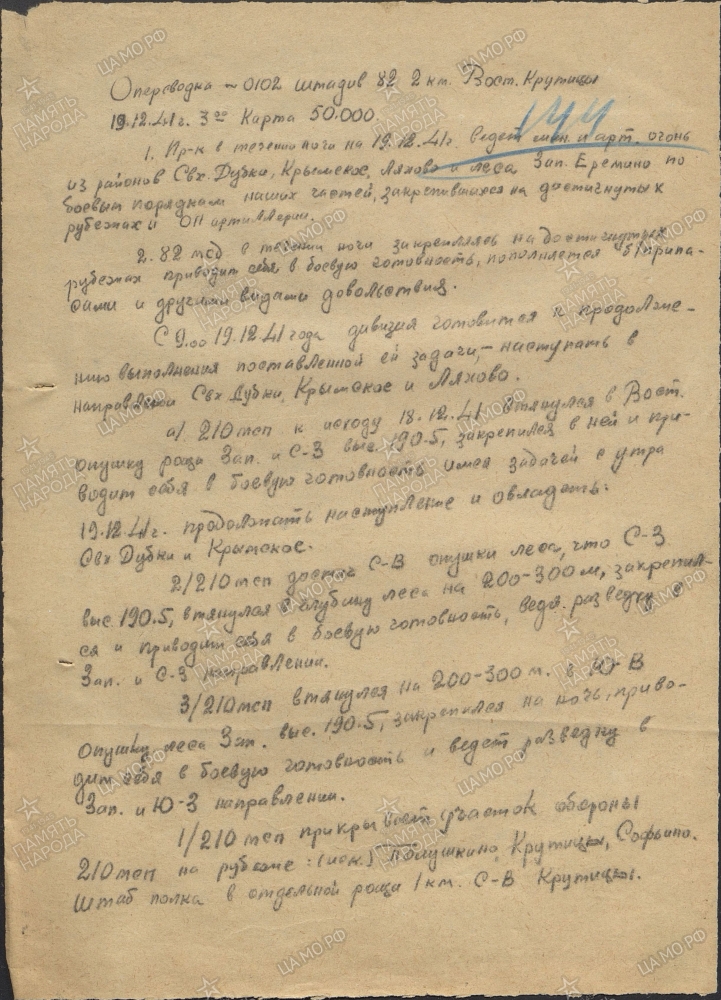 Оперсводка № 0102 штадив 82 2 км. Вост. Крутицы
19.12.41г. 3⁰⁰ Карта 50.000.
144
1. Пр-к в течении ночи на 19.12.41г. ведет мин. и арт. огонь
из районов Свх. Дубки, Крымское, Ляхово и леса Зап. Еремино по
боевым порядкам наших частей, закрепившихся на достигнутых
рубежах и ОП артиллерии.
2. 82 мсд в течении ночи закрепляясь на достигнутых
рубежах приводит себя в боевую готовность, пополняется б/припа-
сами и другими видами довольствия.
С 9.00 19.12.41 года дивизия готовится к продолже-
нию выполнения поставленной ей задачи, – наступать в
направлении Свх Дубки, Крымское и Ляхово.
а/. 210 мсп к исходу 18.12.41. втянулся в Вост.
опушку рощи Зап. и С-З выс. 190.5, закрепился в ней и при-
водит себя в боевую готовность имея задачей с утра
19.12.41г. продолжать наступление и овладеть:
Свх Дубки и Крымское.
2/210 мсп достиг С-В опушки леса, что С-З
выс. 190.5, втянулся в глубину леса на 200-300 м, закрепил-
ся и приводит себя в боевую готовность, ведя разведку в
Зап. и С-З направлении.
3/210 мсп втянулся на 200-300 м. в Ю-В
опушку леса Зап. выс. 190.5, закрепился на ночь, приво-
дит себя в боевую готовность и ведет разведку в
Зап. и Ю-З направлении.
1/210 мсп прикрывает участок обороны
210 мсп на рубеже: (иск.) Полушкино, Крутицы, Софьино.
Штаб полка в отдельной рощи 1 км. С-В Крутицы.
ПАМЯТЬ НАРОДА
ЦАМО.РФ